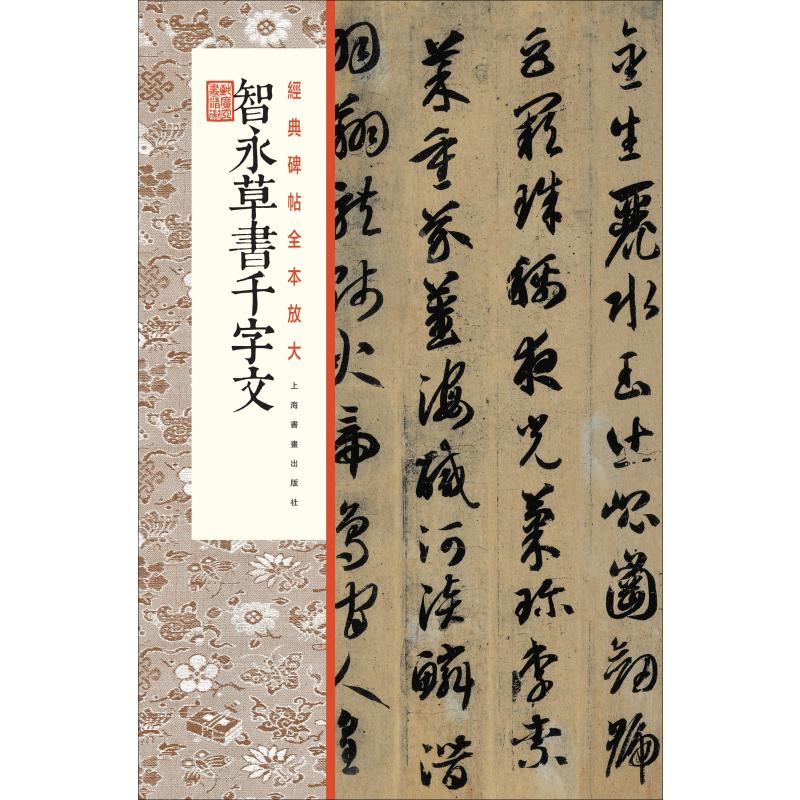 經典碑帖全本放大
智永草書千字文
上海書畫出版社
金生麗水玉出崐崗劒號
巨闕珠稱夜光菓珍李柰
菜重芥薑海醎河淡鱗潛
羽翔龍師火帝鳥官人皇